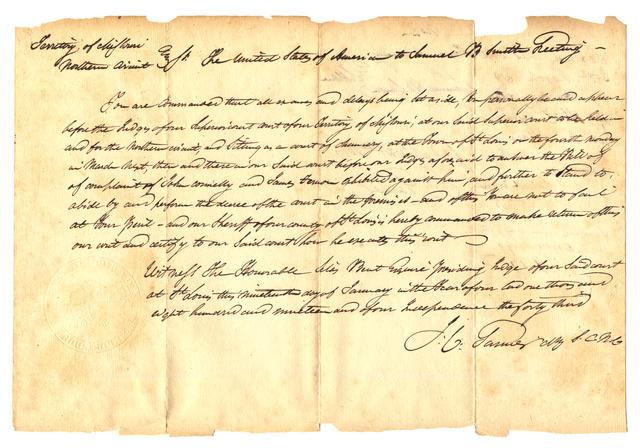 Territory of Missouri
Northern Circuit Sct. The United States of America to Samuel B Smith Greeting —
You are commanded that all excuses and delays being set aside, You personally be and appear
before the Judges of our Superior court of our Territory of Missouri; at our Said Superior court to be held in
and for the Northern circuit, and Sitting as a court of chancery, at the Town of St. Louis on the fourth Monday
in March Next, then and there in our Said court before our Judges aforesaid to answer the Bill of
of complaint of John Connelly and James exhibited against him, and further to Stand to,
abide by and perform the decree of the court in the premises — and of this You are not to fail
at Your Peril — and our Sheriff of our county of St. Louis is hereby commanded to make return of this
our writ and certify to our Said court how he executes this writ
Witness The Honorable Silas Bent Esquire Presiding Judge of our Said court
at St. Louis this Nineteenth day of January in the Year of our Lord one thousand
eight hundred and nineteen and of our Independence the forty third
J. C. Clk S. C. N. C